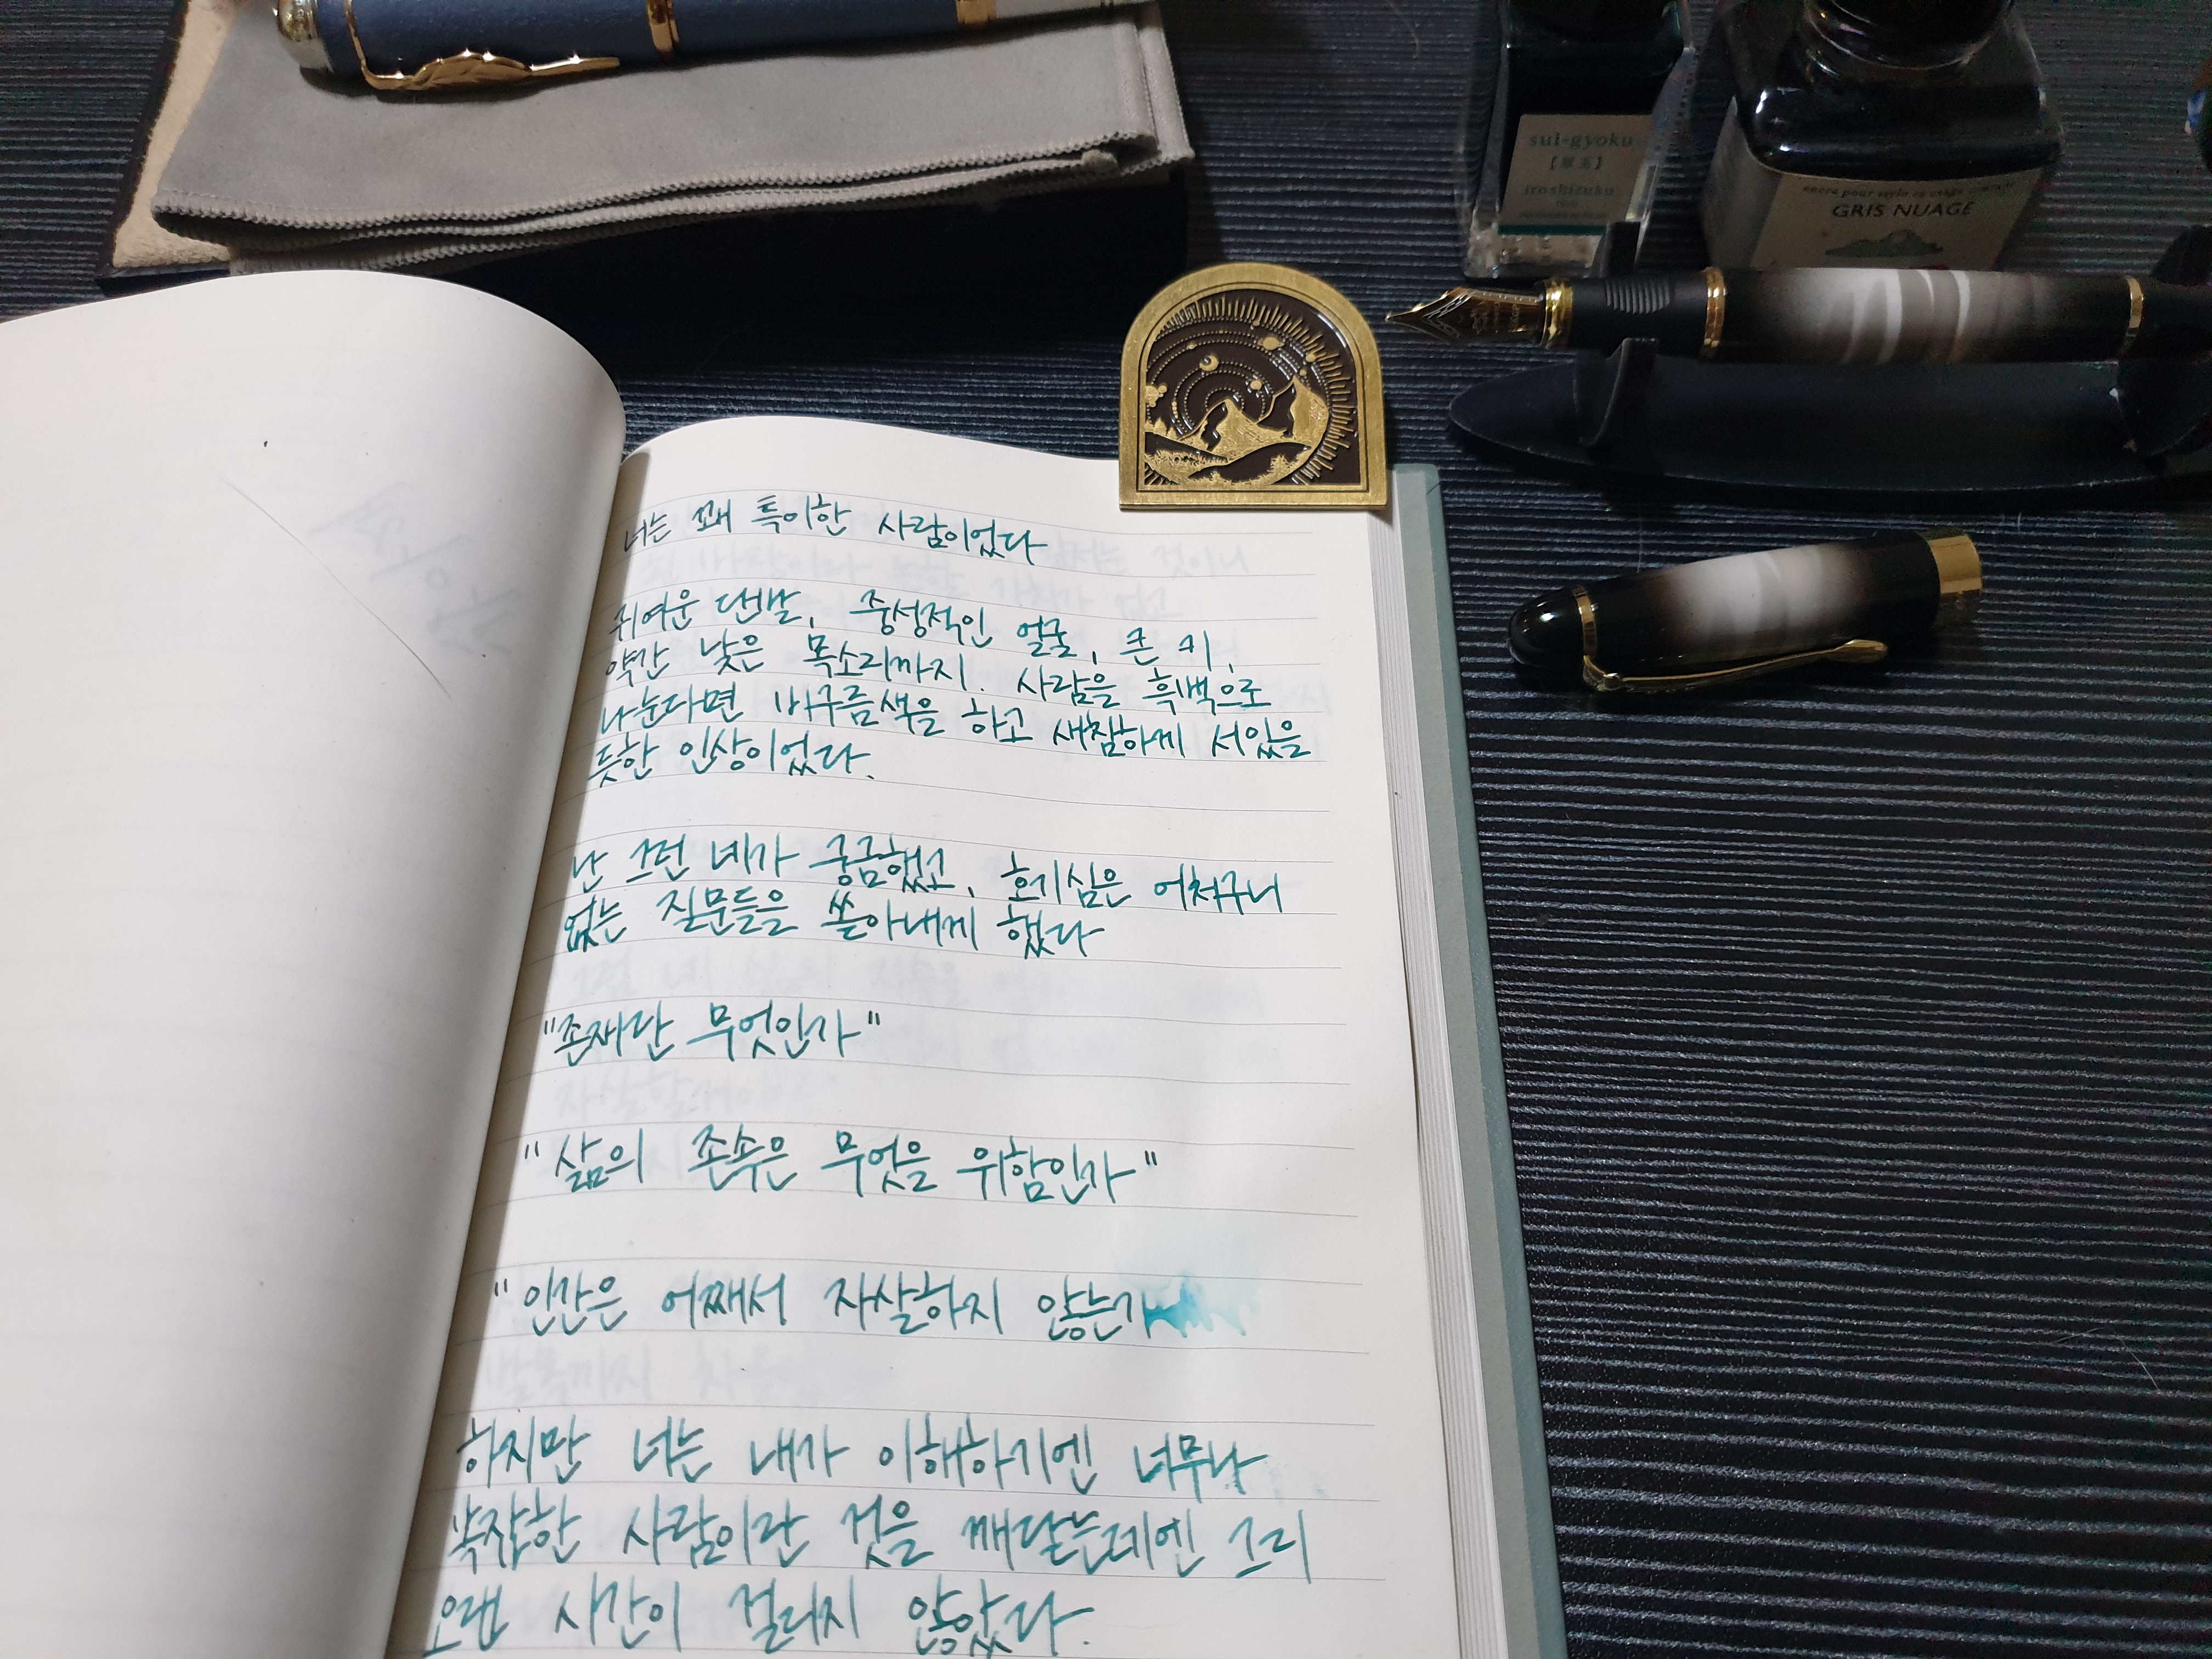 sui-gyoku
【翠玉】
iroshizuku
GRIS NUAGE
너는 꽤 특이한 사람이었다
귀여운 단발, 중성적인 얼굴, 큰 키,
약간 낮은 목소리까지. 사람을 흑백으로
나눈다면 비구름색을 하고 새침하게 서있을
듯한 인상이었다.
난 그런 네가 궁금했고, 호기심은 어처구니
없는 질문들을 쏟아내게 했다
"존재란 무엇인가"
"삶의 존속은 무엇을 위함인가"
"인간은 어째서 자살하지 않는가
하지만 너는 내가 이해하기엔 너무나
복잡한 사람이란 것을 깨달는데엔 그리
오랜 시간이 걸리지 않았다.